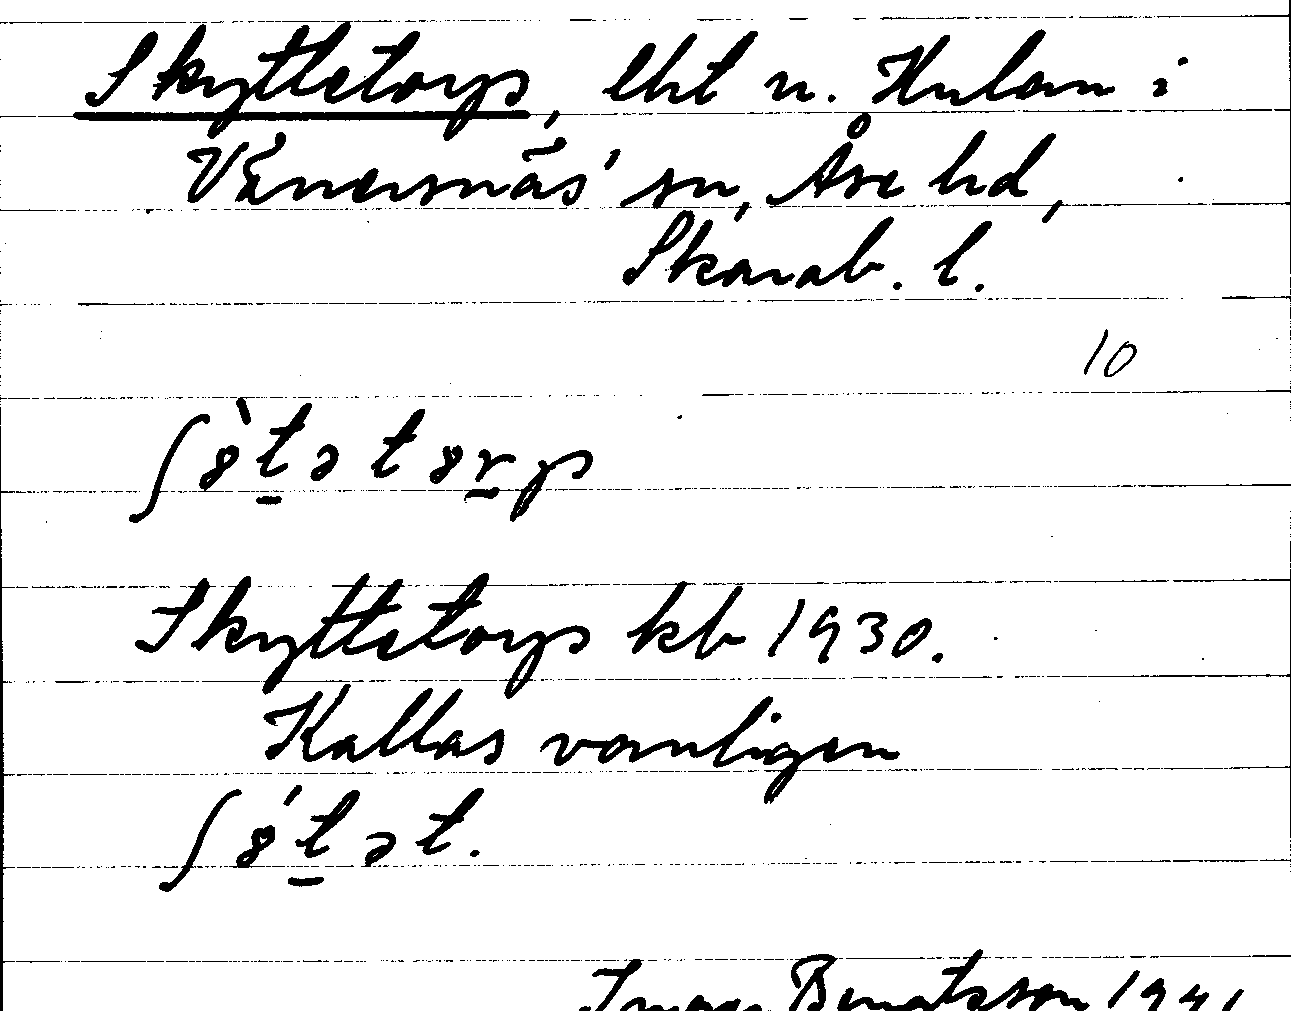 Skyttetorp, lht u. Hulan i
Vänersnäs' sn, Åse hd,
Skarab. l.
10
ʃ8̀t̲ət8r̲p
Skyttetorp kb 1930.
Kallas vanligen
ʃ8́t̲ət.
Bengtsson 1941